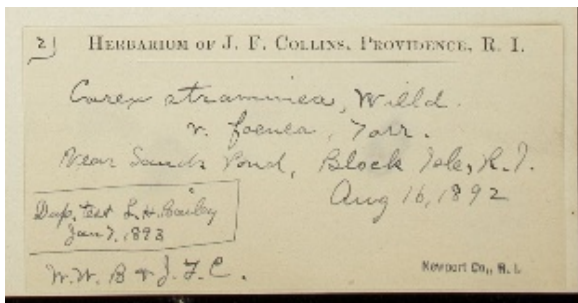 21
HERBARIUM OF J. F. COLLINS, PROVIDENCE, R. I.
Carex straminea, Willd.
v. foenea, Torr.
Near Sands Pond, Block Isle, R.I.
Aug 16, 1892
Dup. test L. H. Bailey
Jan 7, 1893
W. W. B & J. F. C.
Newport Co., R. I.